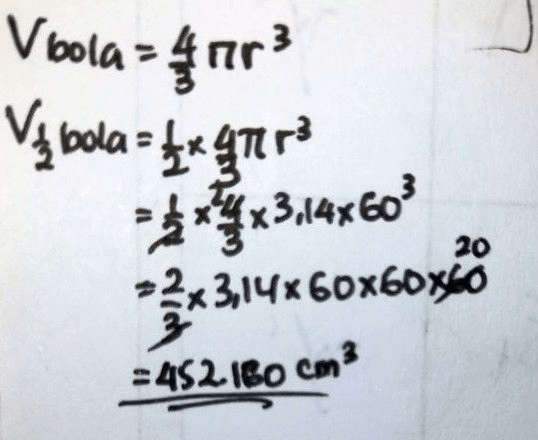 V bola = 4/3 πr³
V 1/2 bola = 1/2 × 4/3 πr³
= 1/2 × 4/3 2 × 3,14 × 60³
= 2/3 × 3,14 × 60 × 60 × 60 20
= 452.160 cm³